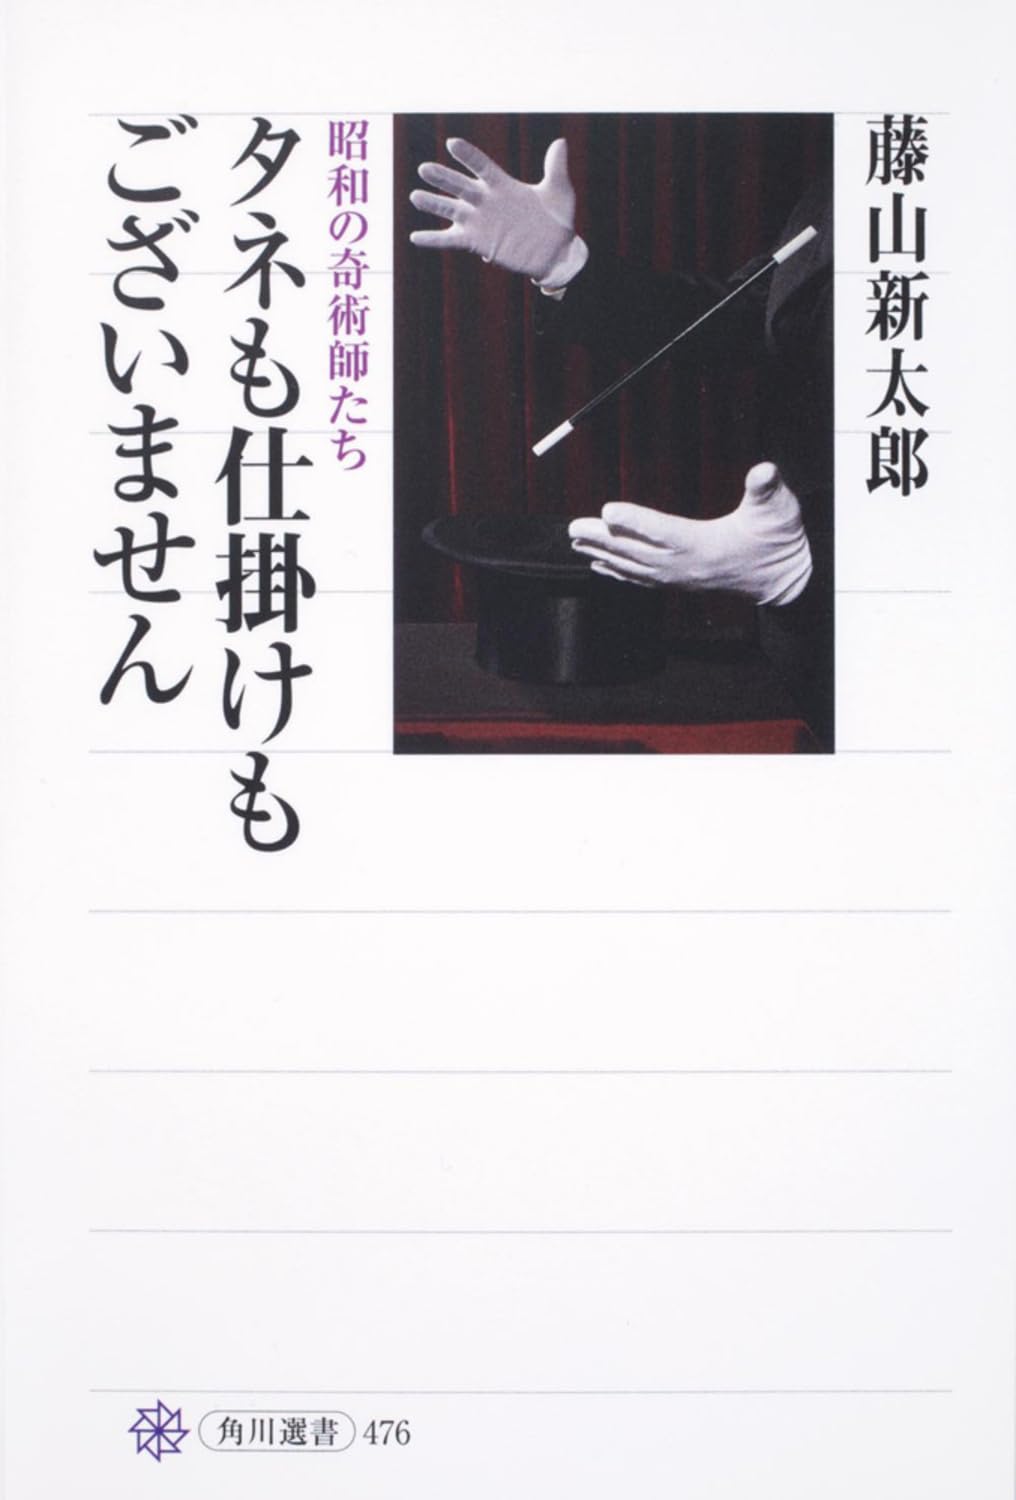 藤山新太郎
昭和の奇術師たち
タネも仕掛けも
ございません
角川選書 476